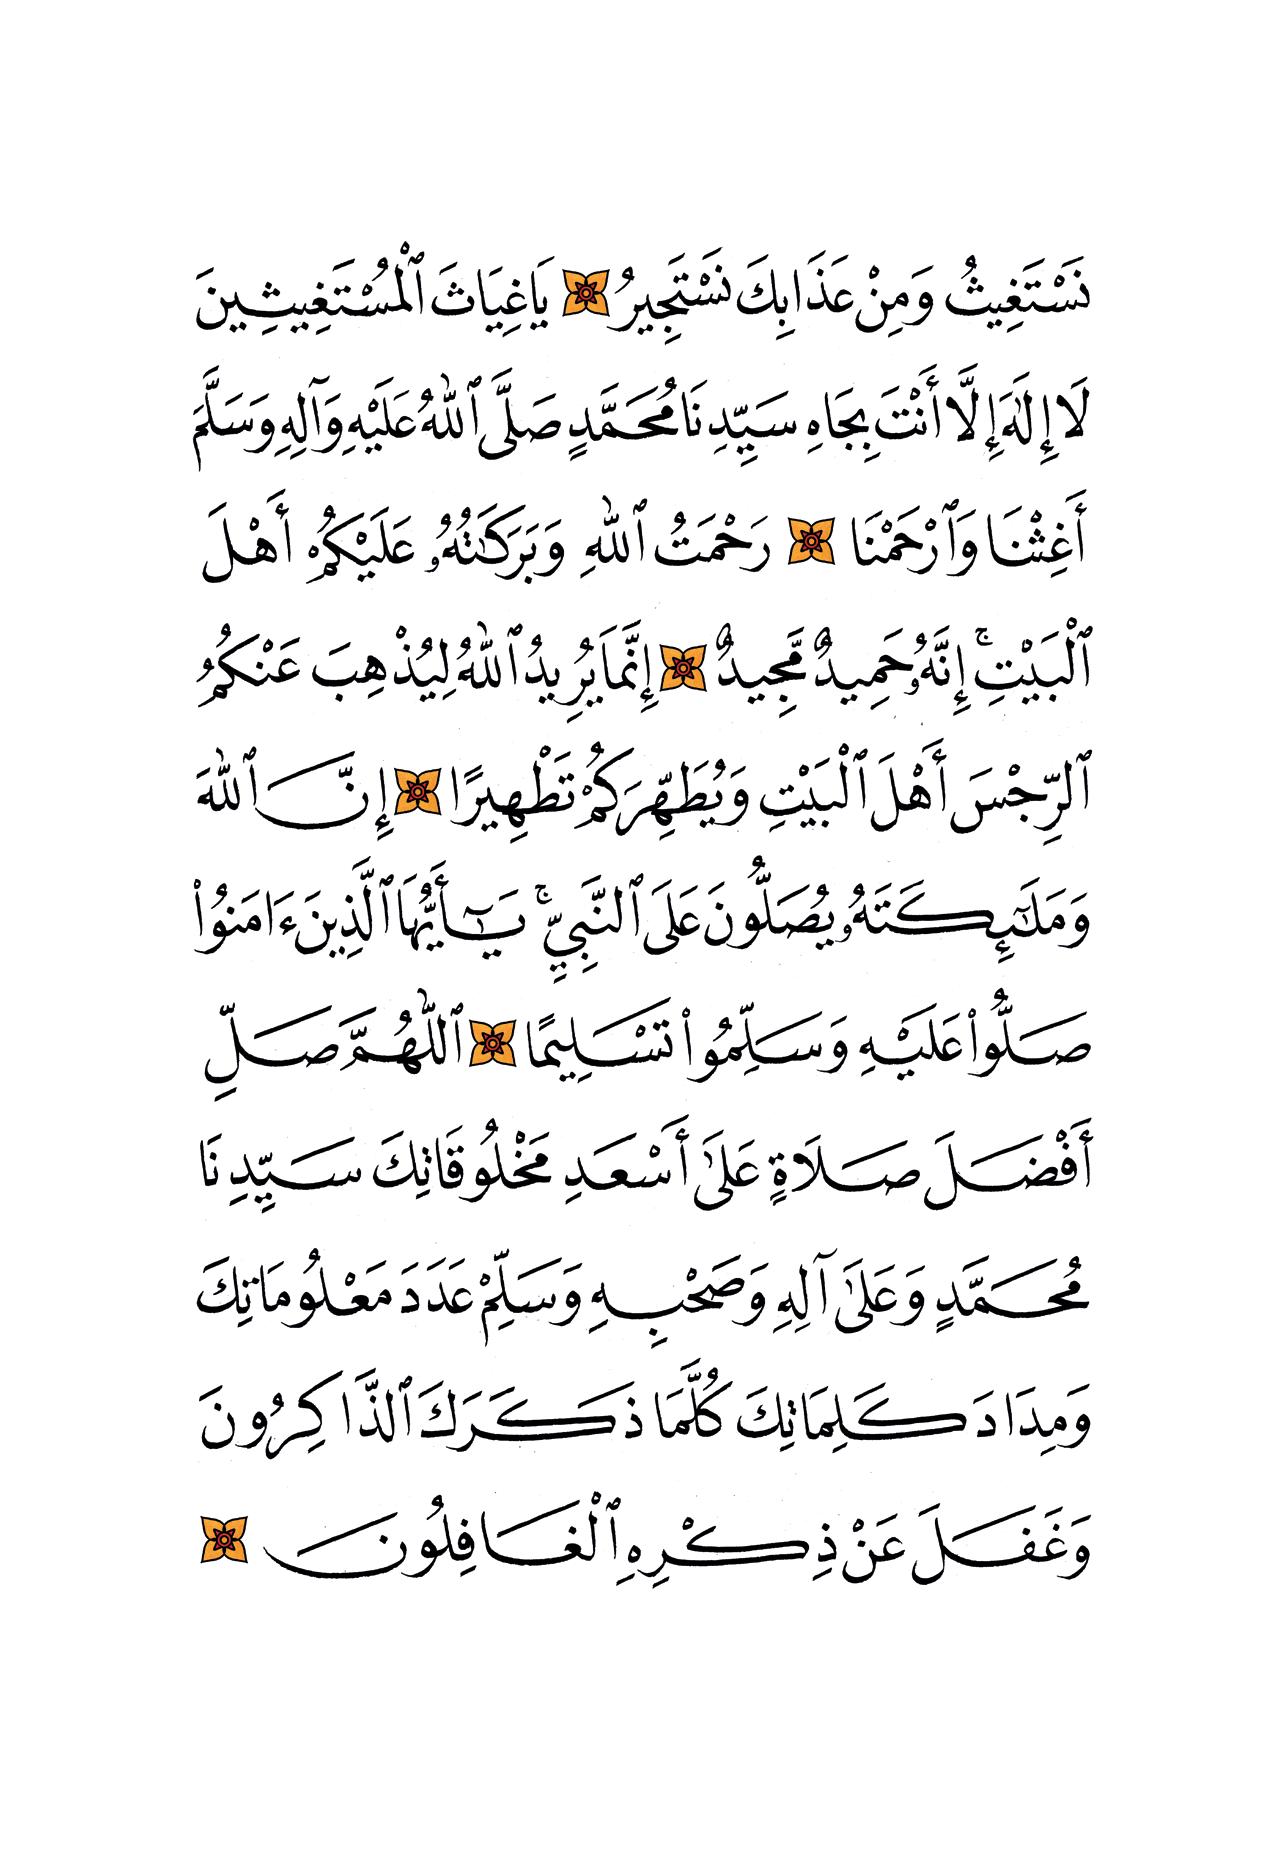 نَسْتَغِيثُ وَمِنْ عَذَابِكَ نَسْتَجِيرُ يَاغِيَاثَ ٱلْمُسْتَغِيثِينَ
لَا إِلَٰهَ إِلَّا أَنْتَ بِجَاهِ سَيِّدِنَا مُحَمَّدٍ صَلَّى ٱللَّهُ عَلَيْهِ وَآلِهِ وَسَلَّمَ
أَغِثْنَا وَٱرْحَمْنَا رَحْمَتُ ٱللَّهِ وَبَرَكَٰتُهُۥ عَلَيْكُمْ أَهْلَ
ٱلْبَيْتِ ۚ إِنَّهُۥ حَمِيدٌ مَّجِيدٌ إِنَّمَا يُرِيدُ ٱللَّهُ لِيُذْهِبَ عَنْكُمُ
ٱلرِّجْسَ أَهْلَ ٱلْبَيْتِ وَيُطَهِّرَكُمْ تَطْهِيرًا إِنَّ ٱللَّهَ
وَمَلَٰٓئِكَتَهُۥ يُصَلُّونَ عَلَى ٱلنَّبِيِّ ۚ يَٰٓأَيُّهَا ٱلَّذِينَ ءَامَنُوا۟
صَلُّوا۟ عَلَيْهِ وَسَلِّمُوا۟ تَسْلِيمًا ٱللَّٰهُمَّ صَلِّ
أَفْضَلَ صَلَاةٍ عَلَىٰ أَسْعَدِ مَخْلُوقَاتِكَ سَيِّدِنَا
مُحَمَّدٍ وَعَلَىٰ آلِهِ وَصَحْبِهِ وَسَلِّمْ عَدَدَ مَعْلُومَاتِكَ
وَمِدَادَ كَلِمَاتِكَ كُلَّمَا ذَكَرَكَ ٱلذَّاكِرُونَ
وَغَفَلَ عَنْ ذِكْرِهِ ٱلْغَافِلُونَ